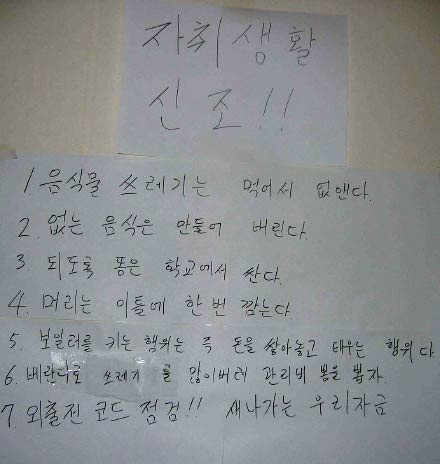 자취생활
신조!!
1. 음식물 쓰레기는 먹어서 없앤다.
2. 없는 음식은 만들어 버린다.
3. 되도록 똥은 학교에서 싼다.
4. 머리는 이틀에 한번 깜는다.
5. 보일러를 키는 행위는 즉 돈을 쌓아놓고 태우는 행위다.
6. 베란다로 쓰레기를 많이버려 관리비 뽕을 뽑자.
7. 외출전 코드 점검!! 새나가는 우리자금